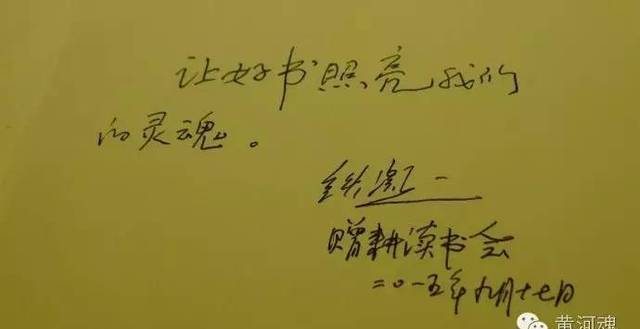 让好书照亮我们
的灵魂。
赠耕读书会
二〇一五年九月十七日
黄河魂